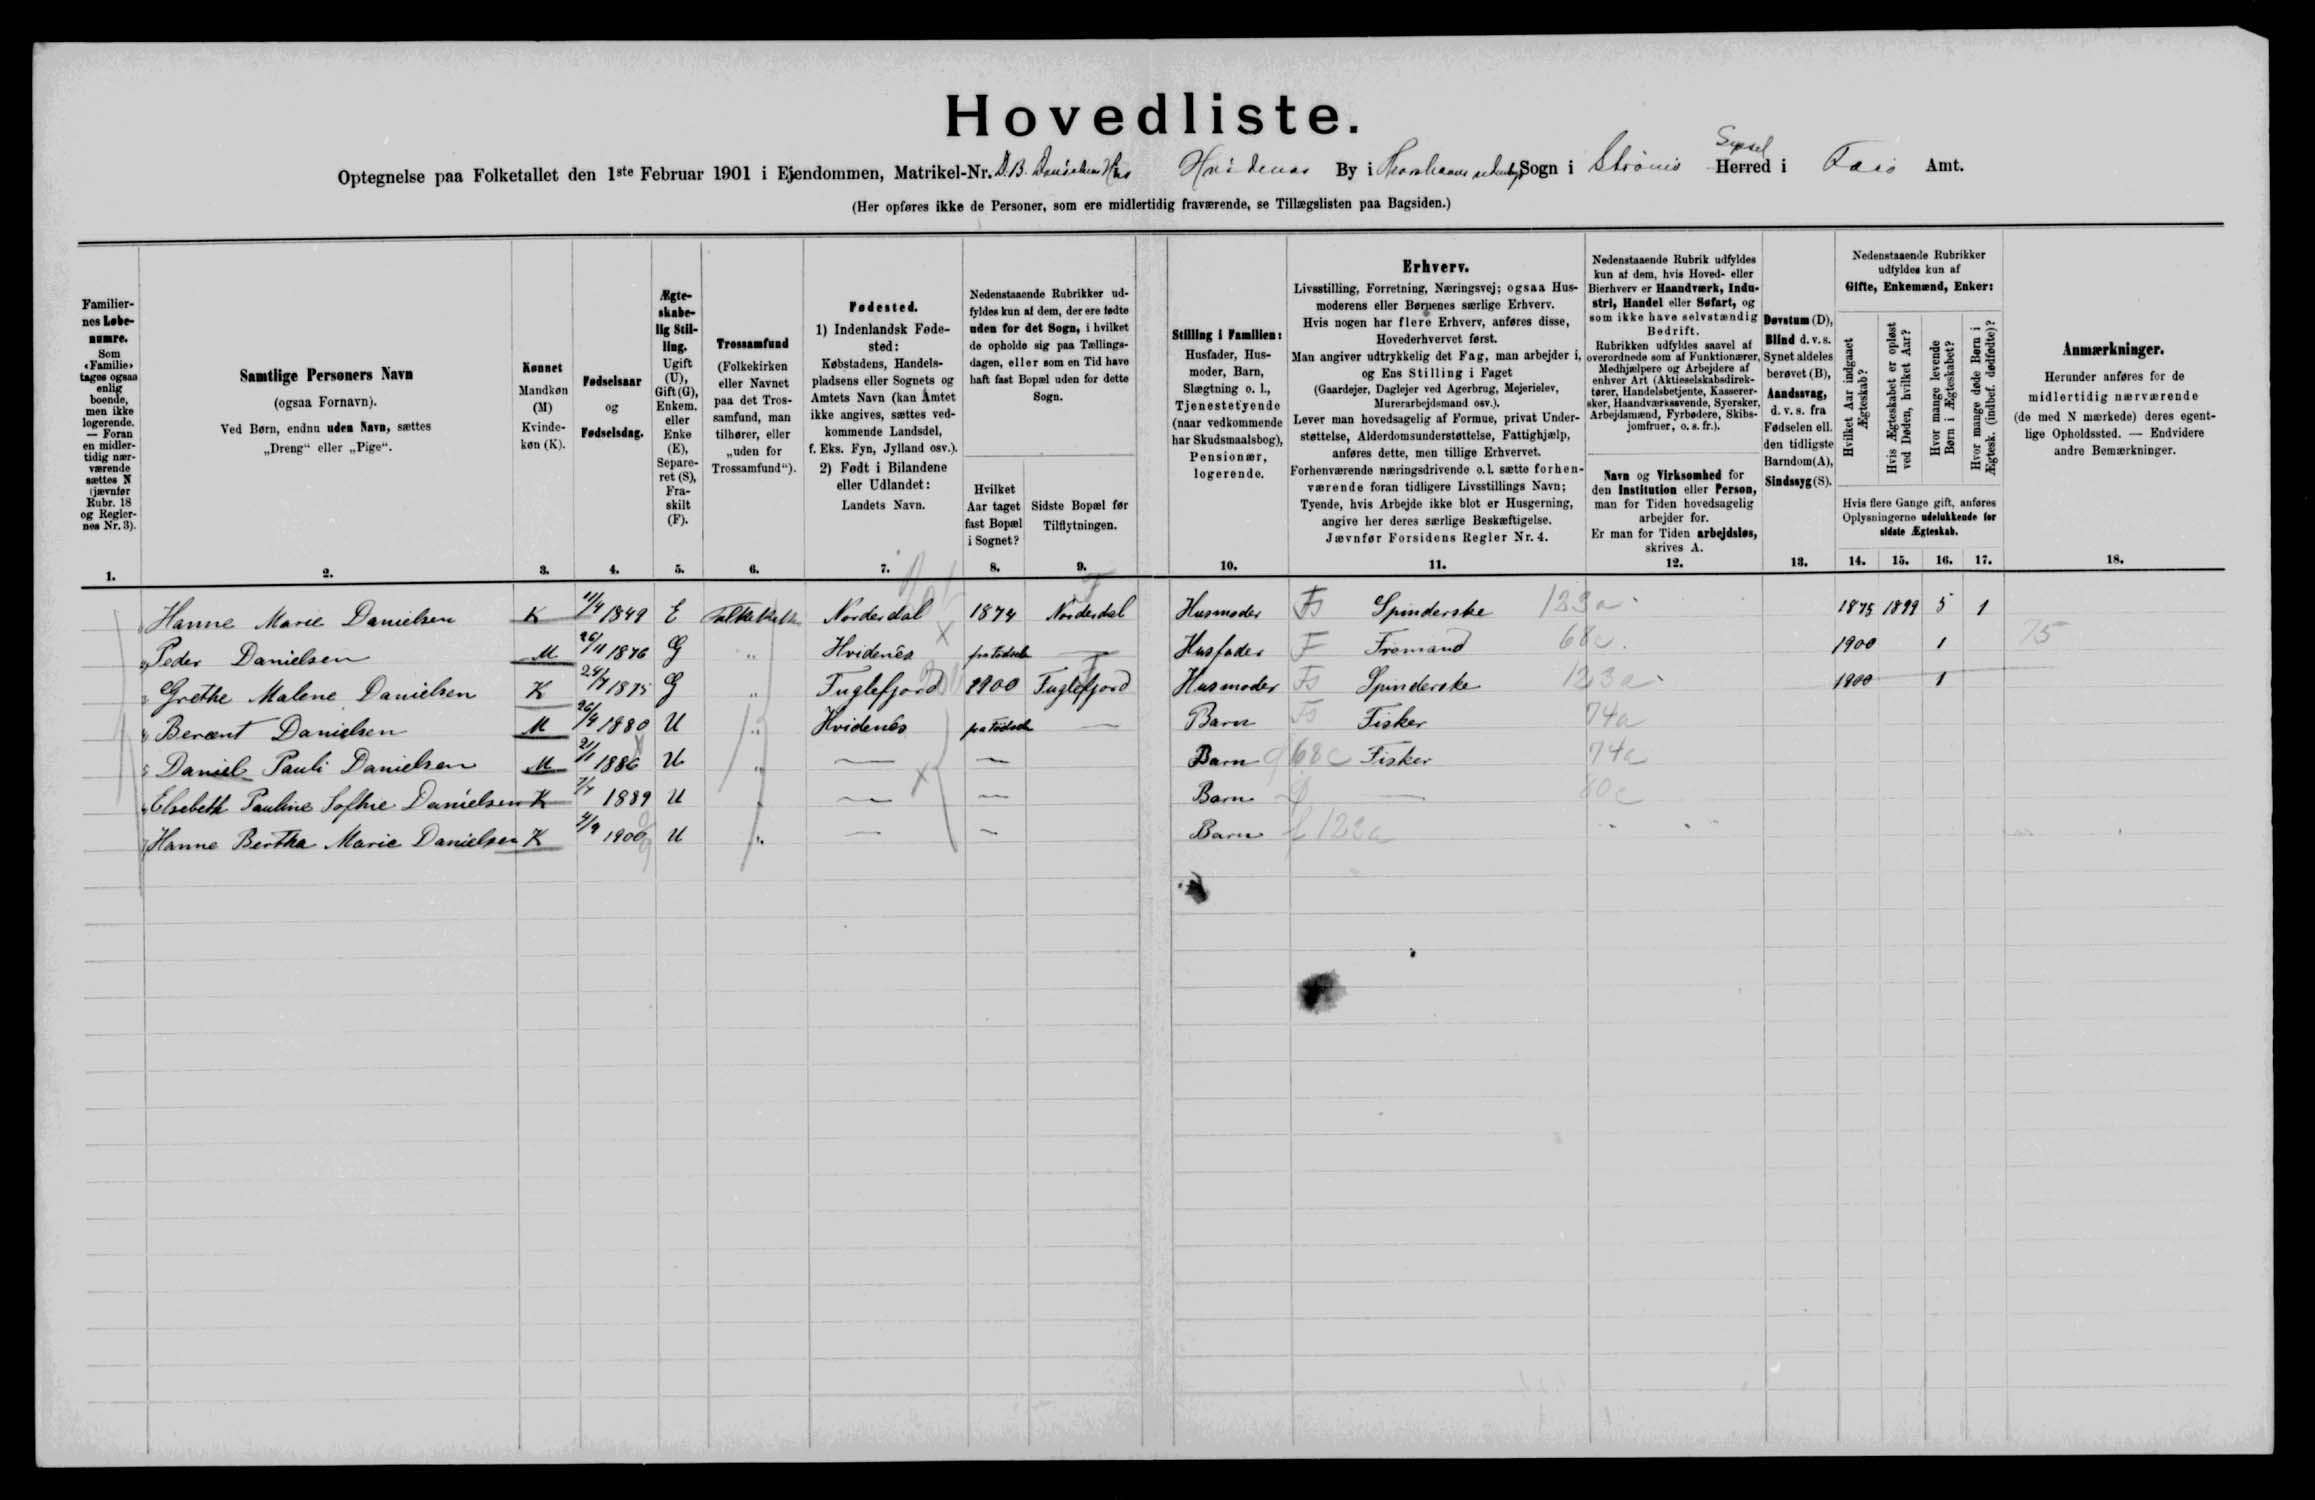 Hovedliste.
Optegnelse paa Folketallet den 1ste Februar 1901 i Ejendommen, Matrikel-Nr. D.B. Danielsens Hus Hvidenæs By i Thorshavns udenbys Sogn i Strømø Syssel Herred i Færø Amt.
(Her opføres ikke de Personer, som ere midlertidig fraværende, se Tillægslisten paa Bagsiden.)
Familiernes Løbenumre.
Som «Familie» tages ogsaa enlig boende, men ikke logerende. — Foran en midlertidig nærværende sættes N (jævnfør Rubr. 18 og Reglernes Nr. 3).
Samtlige Personers Navn
(ogsaa Fornavn).
Ved Børn, endnu uden Navn, sættes
„Dreng“ eller „Pige“.
Kønnet
Mandkøn (M)
Kvindekøn (K).
Fødselsaar
og
Fødselsdag.
Ægteskabelig Stilling.
Ugift (U), Gift (G), Enkem. eller Enke (E), Separeret (S), Fraskilt (F).
Trossamfund
(Folkekirken eller Navnet paa det Trossamfund, man tilhører, eller „uden for Trossamfund“).
Fødested.
1) Indenlandsk Fødested:
Købstadens, Handelspladsens eller Sognets og Amtets Navn (kan Amtet ikke angives, sættes vedkommende Landsdel, f. Eks. Fyn, Jylland osv.).
2) Født i Bilandene eller Udlandet:
Landets Navn.
Nedenstaaende Rubrikker udfyldes kun af dem, der ere fødte uden for det Sogn, i hvilket de opholde sig paa Tællingsdagen, eller som en Tid have haft fast Bopæl uden for dette Sogn.
Hvilket Aar taget fast Bopæl i Sognet?
Sidste Bopæl før Tilflytningen.
Stilling i Familien:
Husfader, Husmoder, Barn, Slægtning o. l., Tjenestetyende (naar vedkommende har Skudsmaalsbog), Pensionær, logerende.
Erhverv.
Livsstilling, Forretning, Næringsvej; ogsaa Husmoderens eller Børnenes særlige Erhverv.
Hvis nogen har flere Erhverv, anføres disse, Hovederhvervet først.
Man angiver udtrykkelig det Fag, man arbejder i, og Ens Stilling i Faget
(Gaardejer, Daglejer ved Agerbrug, Mejerielev, Murerarbejdsmand osv.).
Lever man hovedsagelig af Formue, privat Understøttelse, Alderdomsunderstøttelse, Fattighjælp, anføres dette, men tillige Erhvervet.
Forhenværende næringsdrivende o. l. sætte forhenværende foran tidligere Livsstillings Navn; Tyende, hvis Arbejde ikke blot er Husgerning, angive her deres særlige Beskæftigelse.
Jævnfør Forsidens Regler Nr. 4.
Nedenstaaende Rubrik udfyldes kun af dem, hvis Hoved- eller Bierhverv er Haandværk, Industri, Handel eller Søfart, og som ikke have selvstændig Bedrift.
Rubrikken udfyldes saavel af overordnede som af Funktionærer, Medhjælpere og Arbejdere af enhver Art (Aktieselskabsdirektører, Handelsbetjente, Kasserersker, Haandværkssvende, Syersker, Arbejdsmænd, Fyrbødere, Skibsjomfruer, o. s. fr.).
Navn og Virksomhed for den Institution eller Person, man for Tiden hovedsagelig arbejder for.
Er man for Tiden arbejdsløs, skrives A.
Døvstum (D), Blind d. v. s. Synet aldeles berøvet (B), Aandssvag, d. v. s. fra Fødselen ell. den tidligste Barndom (A), Sindssyg (S).
Nedenstaaende Rubrikker udfyldes kun af
Gifte, Enkemænd, Enker:
Hvilket Aar indgaaet Ægteskab?
Hvis Ægteskabet er opløst ved Døden, hvilket Aar?
Hvor mange levende Børn i Ægteskabet?
Hvor mange døde Børn i Ægtesk. (indbef. dødfødte)?
Hvis flere Gange gift, anføres Oplysningerne udelukkende for sidste Ægteskab.
Anmærkninger.
Herunder anføres for de midlertidig nærværende (de med N mærkede) deres egentlige Opholdssted. — Endvidere andre Bemærkninger.
1. 2. 3. 4. 5. 6. 7. 8. 9. 10. 11. 12. 13. 14. 15. 16. 17. 18.
Hanne Marie Danielsen K 11/9 1849 E Folkekirken Norderdal 1874 Norderdal Husmoder Fs Spinderske 123a 1875 1899 5 1
Peder Danielsen M 26/11 1876 G „ Hvidenæs fra Fødsel — Husfader F Fremand 68c 1900 1 75
Grethe Malene Danielsen K 24/7 1875 G „ Fuglefjord 1900 Fuglefjord Husmoder Fs Spinderske 123a 1900 1
Berent Danielsen M 26/9 1880 U „ Hvidenæs fra Fødsel — Barn Fs Fisker 74a
Daniel Pauli Danielsen M 21/11 1886 U „ — — Barn 68c Fisker 74a
Elsebeth Pauline Sofhie Danielsen K 7/7 1889 U „ — — Barn — 80c
Hanne Bertha Marie Danielsen K 4/9 1900 U „ — — Barn f 123a